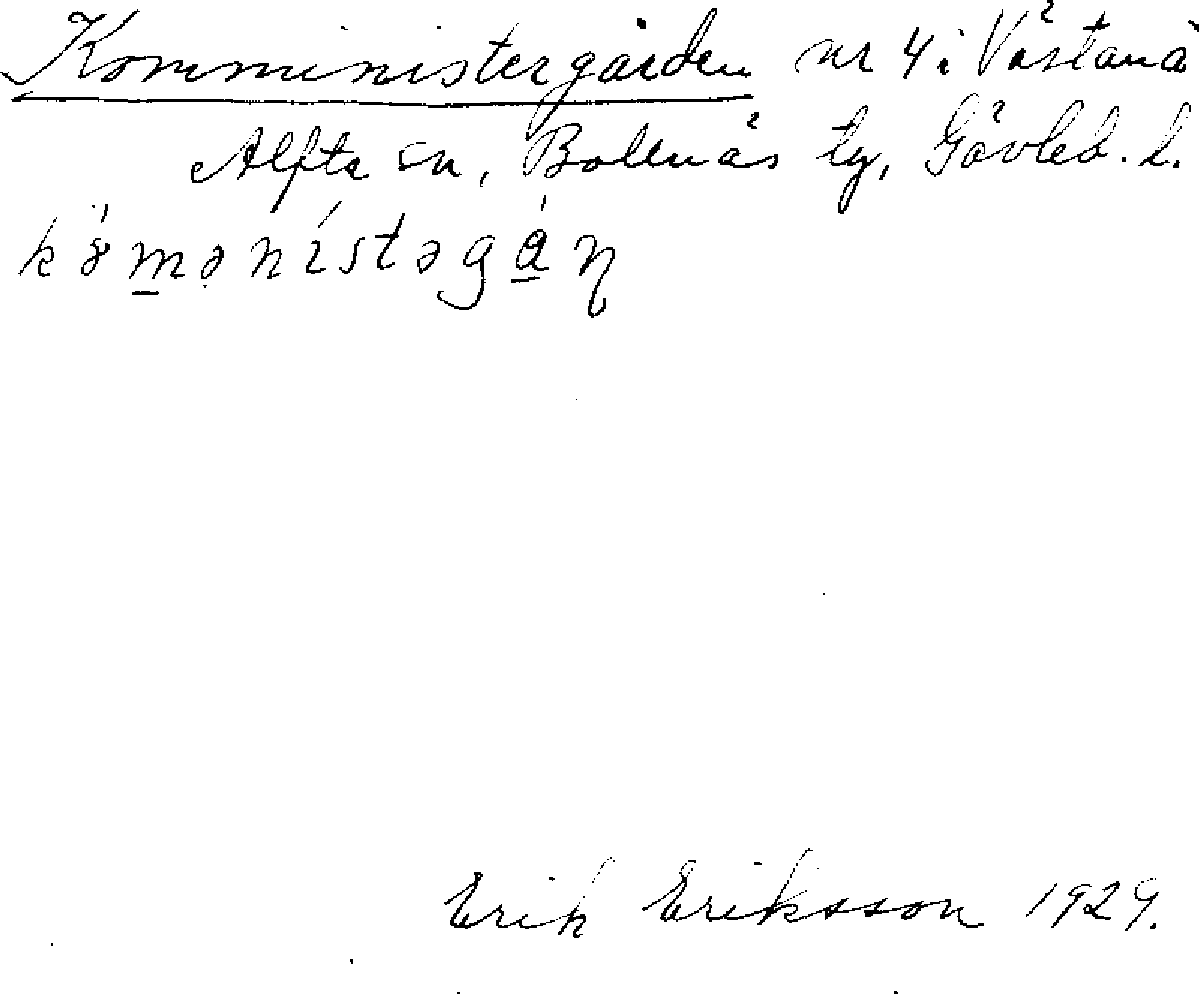 Komministergården nr 4 i Västanå
Alfta sn, Bollnäs tg, Gävleb. l.
Erik Eriksson 1929.